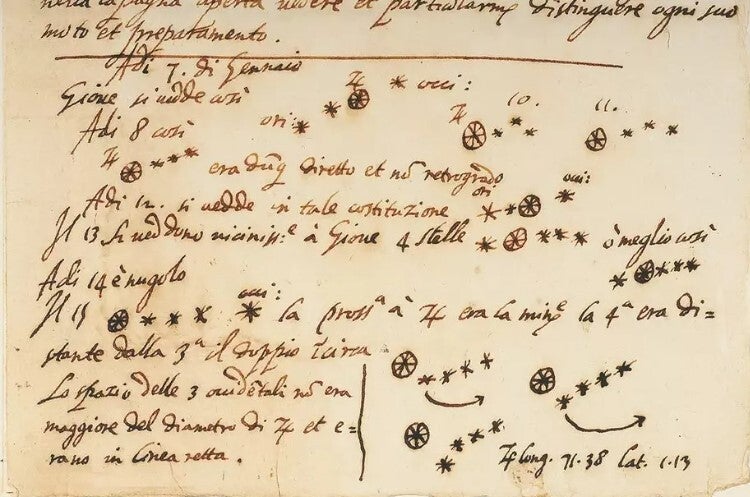 nella lapagna aperta vedere et particolarmᵉ distinguere ogni suo
moto et preparamento.
Adi 7. di Gennaio
Giove si vedde così ori: ♃ occi:
Adi 8 così ♃ 10. 11.
♃ era dūq diretto et nō retrogrado
Adi 12. si vedde in tale costituzione ori: occi:
Il 13 si veddono viciniss:ᵉ à Giove 4 stelle ò meglio così
Adi 14 è nugolo
Il 15 occi: la prossᵃ à ♃ era la minᵉ la 4ᵃ era di=
stante dalla 3ᵃ il doppio circa
Lo spazio delle 3 occidētali nō era
maggiore del diametro di ♃ et e-
rano in linea retta.
♃ long. 71.38 lat. 1.13